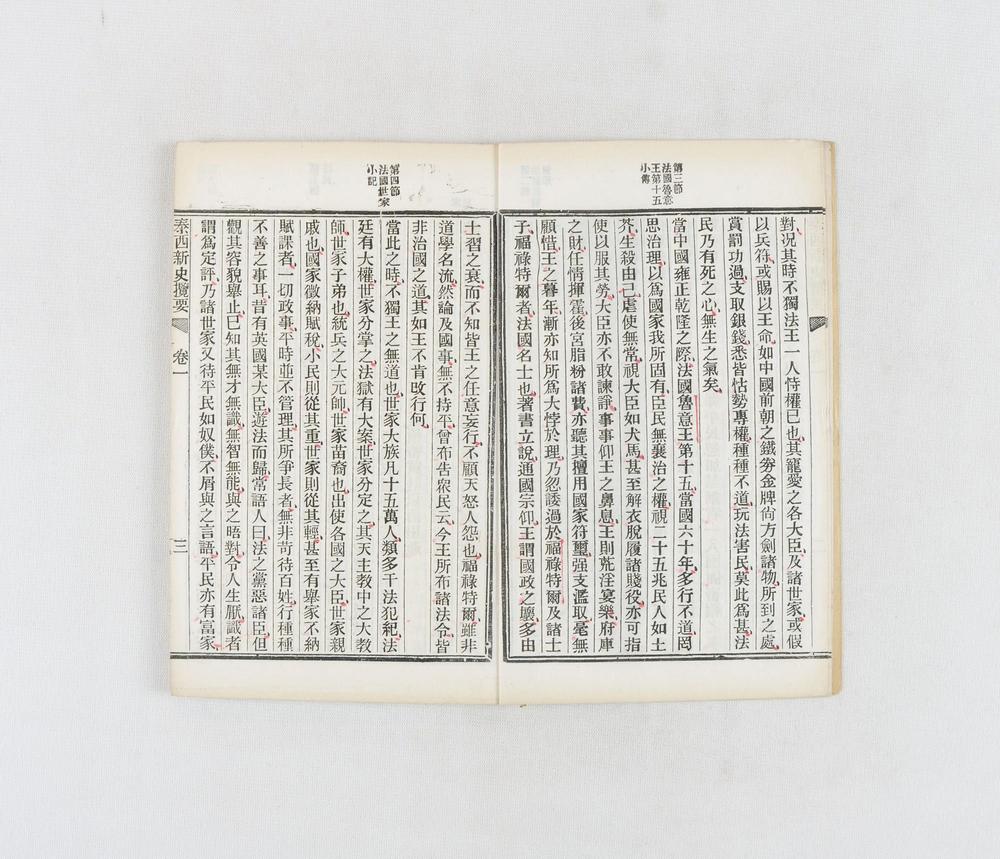 第三節
法國魯意
王第十五
小傳
對况其時不獨法王一人恃權已也其寵愛之各大臣及諸世家或假
以兵符或賜以王命如中國前朝之鐵劵金牌尙方劍諸物所到之處
賞罰功過支取銀錢悉皆怙勢專權種種不道玩法害民莫此爲甚法
民乃有死之心無生之氣矣
當中國雍正乾隆之際法國魯意王第十五當國六十年多行不道罔
思治理以爲國家我所固有臣民無襄治之權視二十五兆民人如土
芥生殺由己虐使無常視大臣如犬馬甚至解衣脫履諸賤役亦可指
使以服其勞大臣亦不敢諫諍事事仰王之鼻息王則荒淫宴樂府庫
之財任情揮霍後宮脂粉諸費亦聽其擅用國家符璽强支濫取毫無
顧惜王之暮年漸亦知所爲大悖於理乃忽諉過於福祿特爾及諸士
子福祿特爾者法國名士也著書立說通國宗仰王謂國政之壞多由
第四節
法國世家
小記
士習之衰而不知皆王之任意妄行不顧天怒人怨也福祿特爾雖非
道學名流然論及國事無不持平曾布告衆民云今王所布諸法令皆
非治國之道其如王不肯攺行何
當此之時不獨王之無道也世家大族凡十五萬人類多干法犯紀法
廷有大權世家分掌之法獄有大案世家分定之其天主教中之大教
師世家子弟也統兵之大元帥世家苗裔也出使各國之大臣世家親
戚也國家徵納賦稅小民則從其重世家則從其輕甚至有舉家不納
賦課者一切政事平時並不管理其所爭長者無非苛待百姓行種種
不善之事耳昔有英國某大臣遊法而歸常語人曰法之黨惡諸臣但
觀其容貌舉止已知其無才無識無智無能與之晤對令人生厭識者
謂爲定評乃諸世家又待平民如奴僕不屑與之言語平民亦有富家
泰西新史攬要
卷一
三